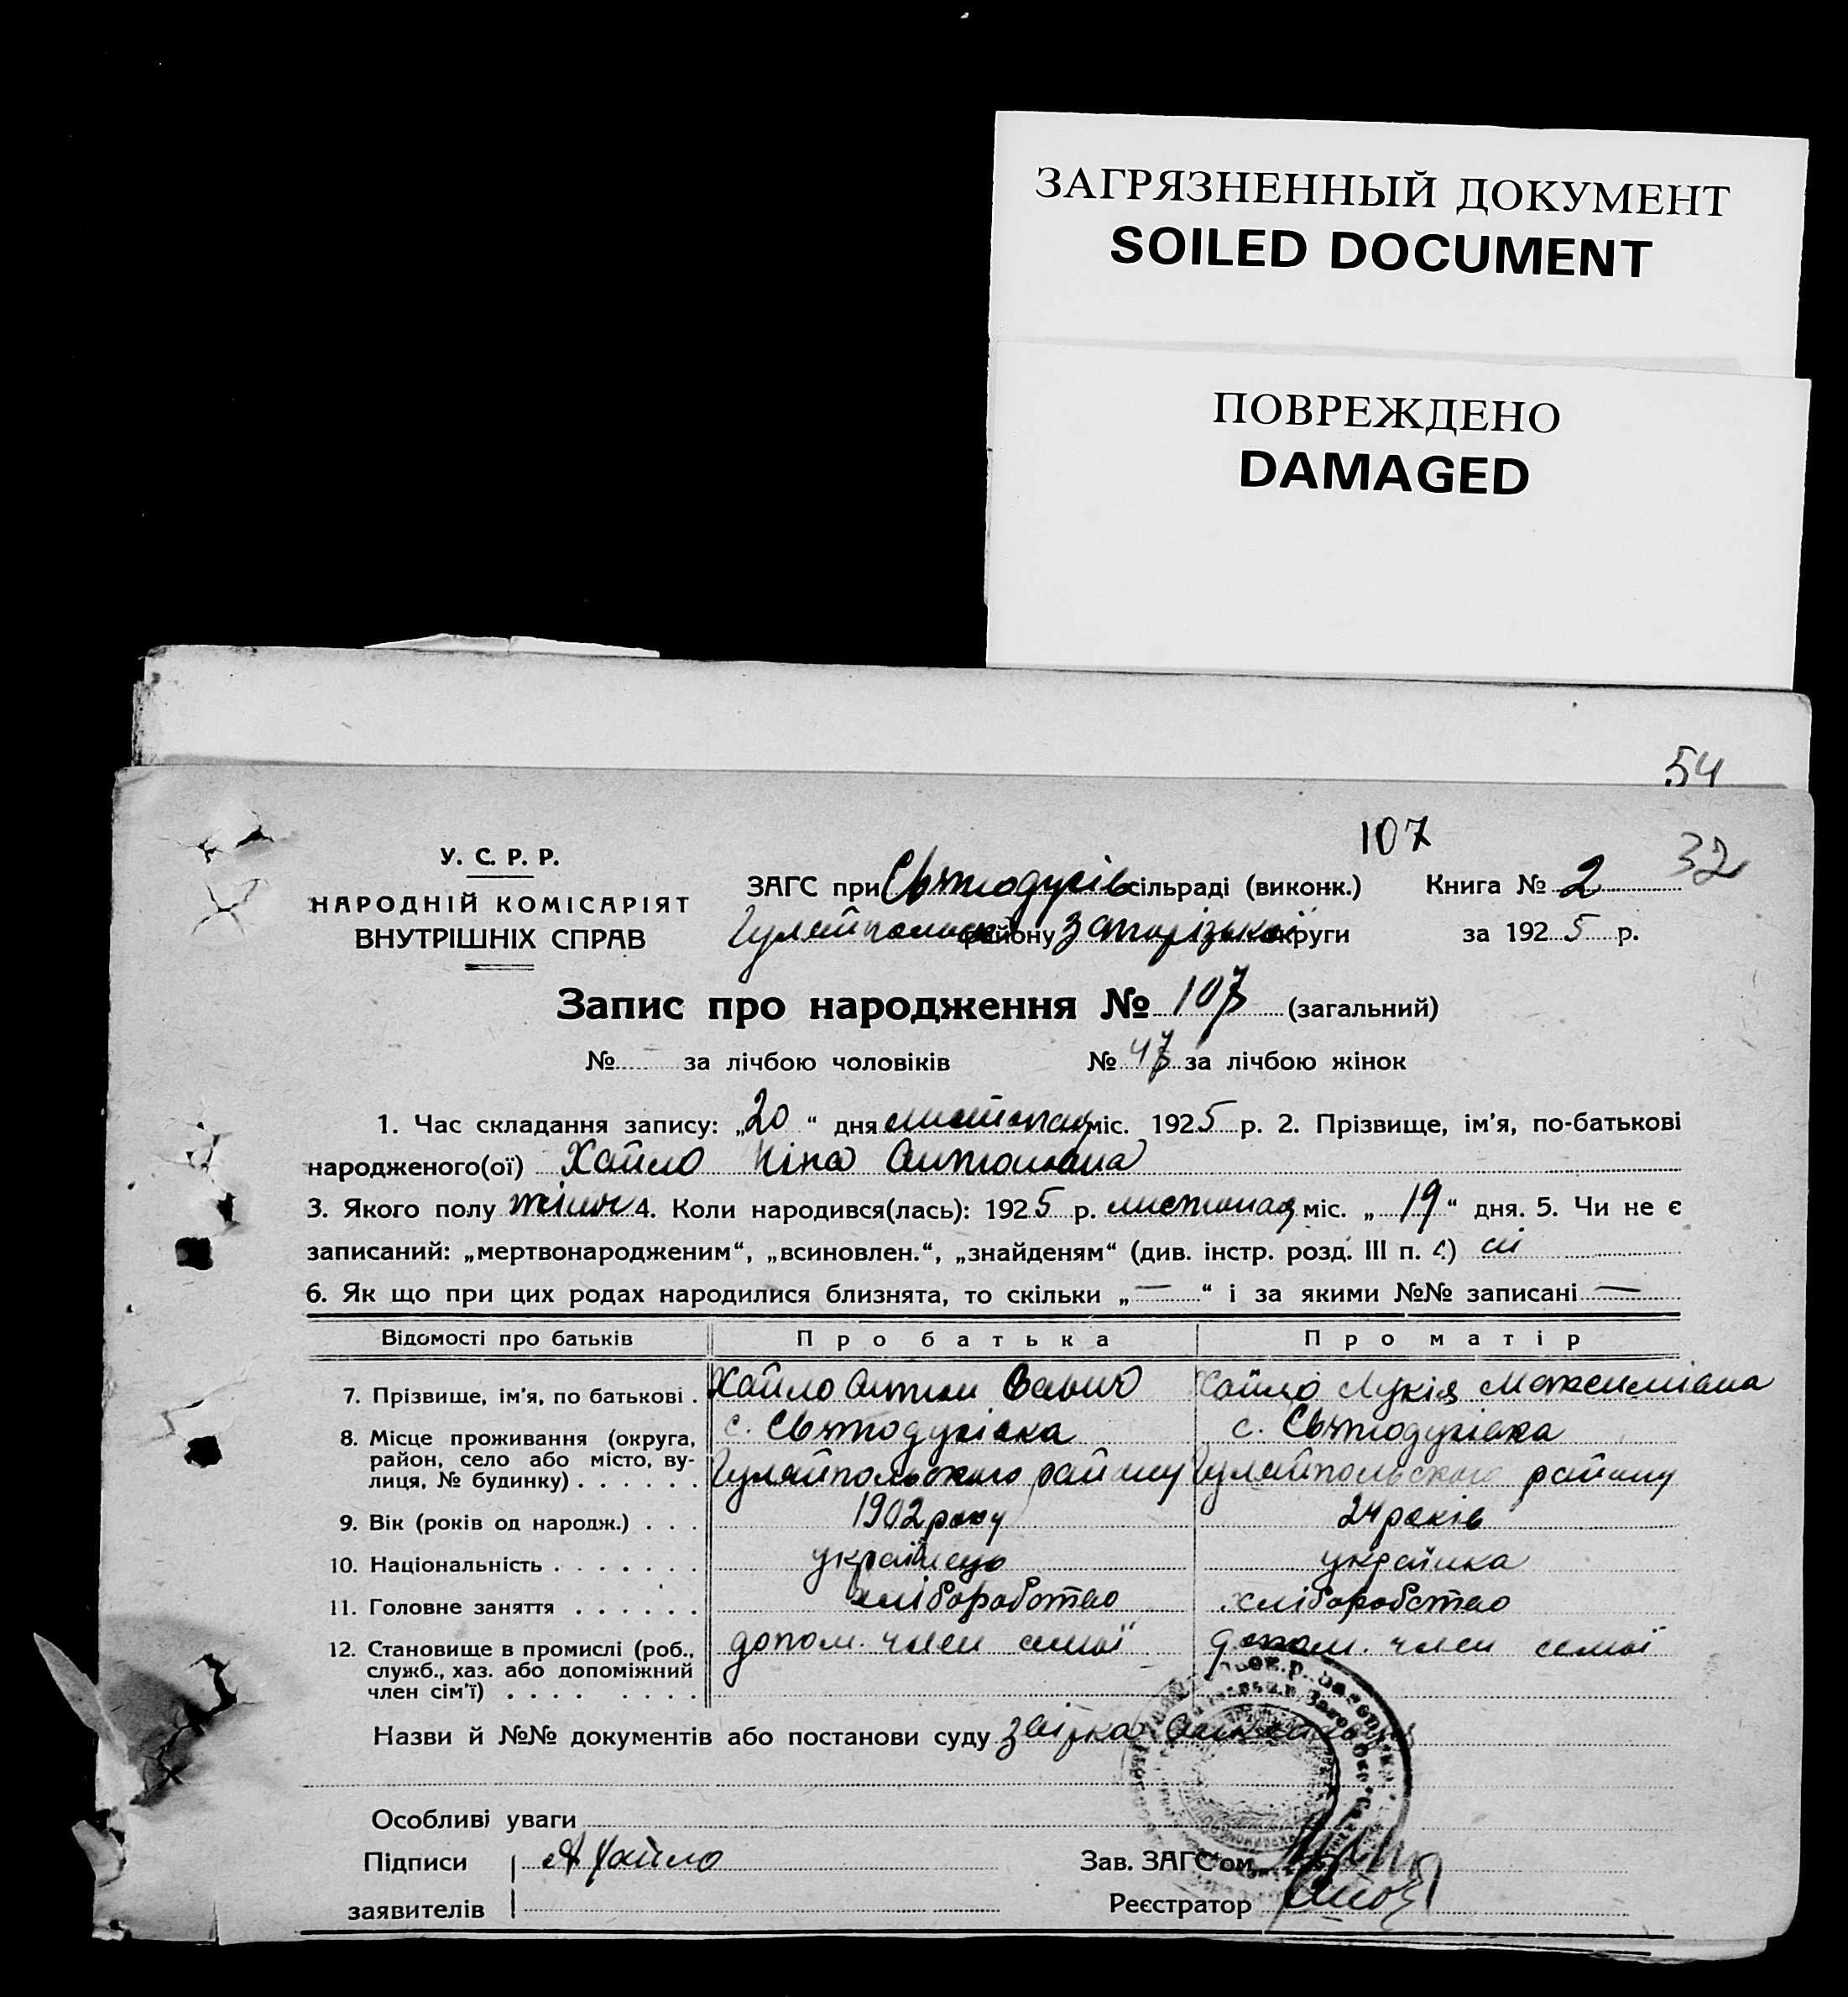 ЗАГРЯЗНЕННЫЙ ДОКУМЕНТ
SOILED DOCUMENT
ПОВРЕЖДЕНО
DAMAGED
54
107
32
У. С. Р. Р.
НАРОДНІЙ КОМІСАРІЯТ
ВНУТРІШНІХ СПРАВ
ЗАГС при Святодухів сільраді (виконк.) Книга № 2
Гуляйпольськ району Запорізької округи за 1925 р.
Запис про народження № 107 (загальний)
№ за лічбою чоловіків № 47 за лічбою жінок
1. Час складання запису: „20“ дня листопад міс. 1925 р. 2. Прізвище, ім'я, по-батькові
народженого(ої) Хайло Ніна Антоновна
3. Якого полу жіноч 4. Коли народився(лась): 1925 р. листопад міс. „19“ дня. 5. Чи не є
записаний: „мертвонародженим“, „всиновлен.“, „знайденям“ (див. інстр. розд. III п. ) ні
6. Як що при цих родах народилися близнята, то скільки „—“ і за якими №№ записані —
Відомості про батьків Про батька Про матір
7. Прізвище, ім'я, по батькові . Хайло Антон Хайло Лукія
8. Місце проживання (округа, с. Святодухівка с. Святодухівка
район, село або місто, ву-
лиця, № будинку) . . . . . . Гуляйпольського району Гуляйпольского району
9. Вік (років од народж.) . . . 1902 року 24 років
10. Національність . . . . . . . українець украйнка
11. Головне заняття . . . . . . хліборобство хліборобство
12. Становище в промислі (роб., допом. член семьї допом. член семьї
служб., хаз. або допоміжний
член сім'ї) . . . . . . . .
Назви й №№ документів або постанови суду
Особливі уваги
Підписи А Хайло Зав. ЗАГС'ом
заявителів Реєстратор